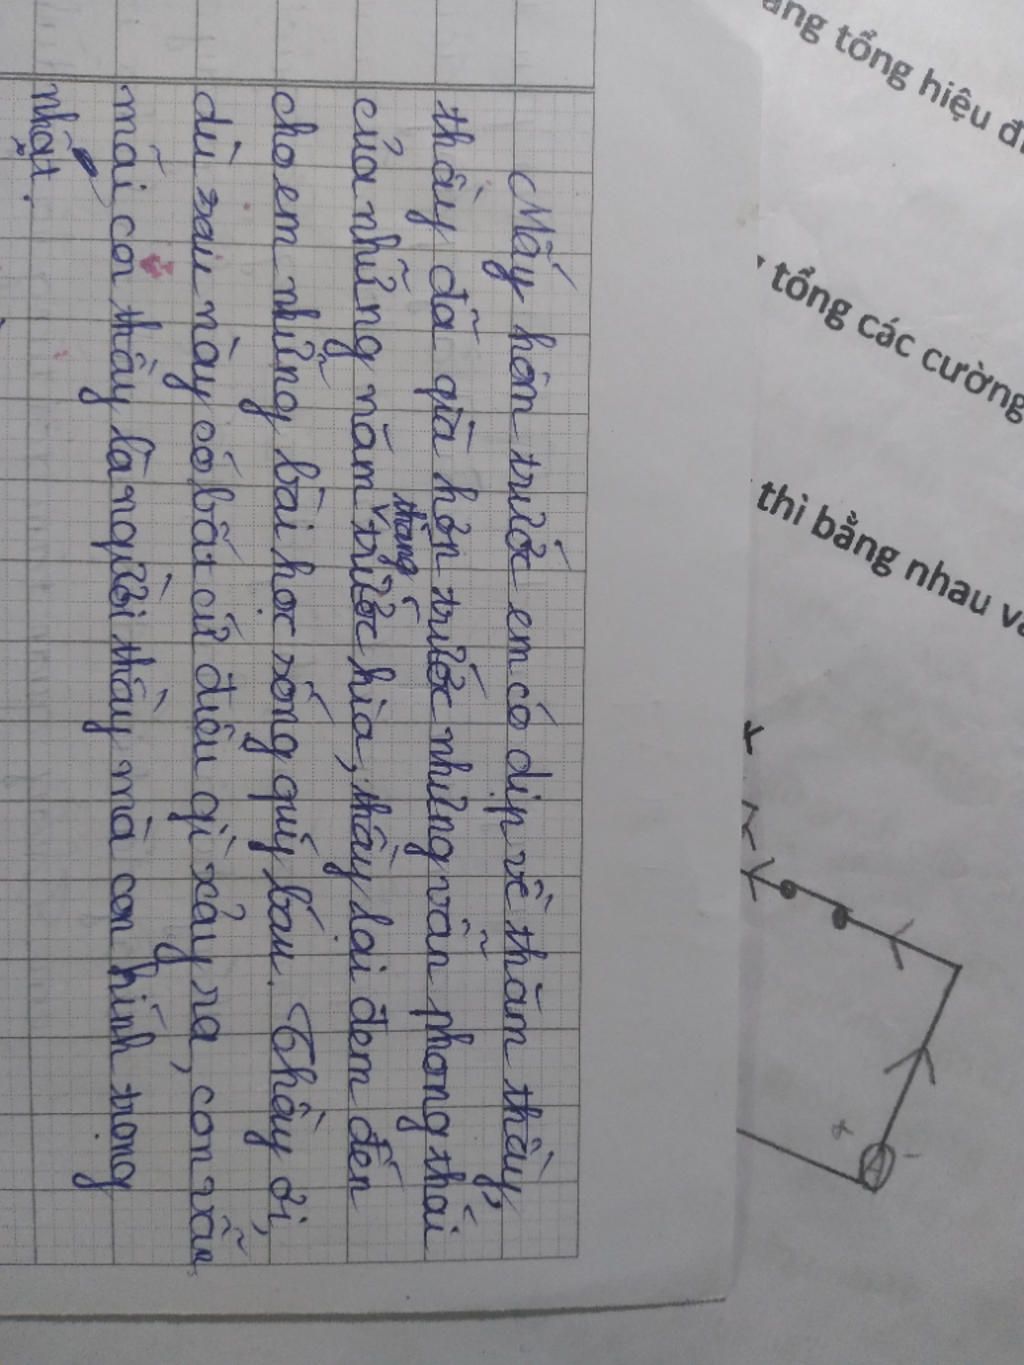 Mấy hôm trước em có dịp về thăm thầy,
thầy đã già hơn trước nhưng vẫn phong thái
của những năm tháng trước kia, thầy lại đem đến
cho em những bài học sống quý báu. Thầy ơi,
dù sau này có bất cứ điều gì xảy ra, con vẫn
mãi coi thầy là người thầy mà con kính trọng
nhất.
ằng tổng hiệu đi
tổng các cường
thì bằng nhau và
K
+ A -